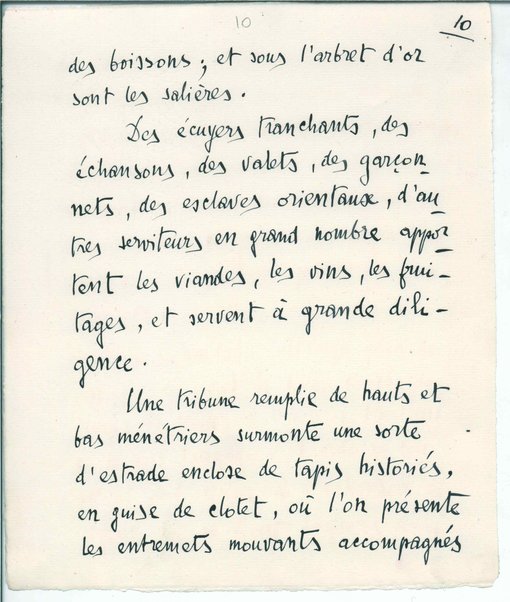 10
10
des boissons ; et sous l'arbret d'or
sont les salières.
Des écuyers tranchants, des
échansons, des valets, des garçon-
nets, des esclaves orientaux, d'au-
tres serviteurs en grand nombre appor-
tent les viandes, les vins, les frui-
tages, et servent à grande dili-
gence.
Une tribune remplie de hauts et
bas ménétriers surmonte une sorte
d'estrade enclose de tapis historiés,
en guise de clotet, où l'on présente
les entremets mouvants accompagnés